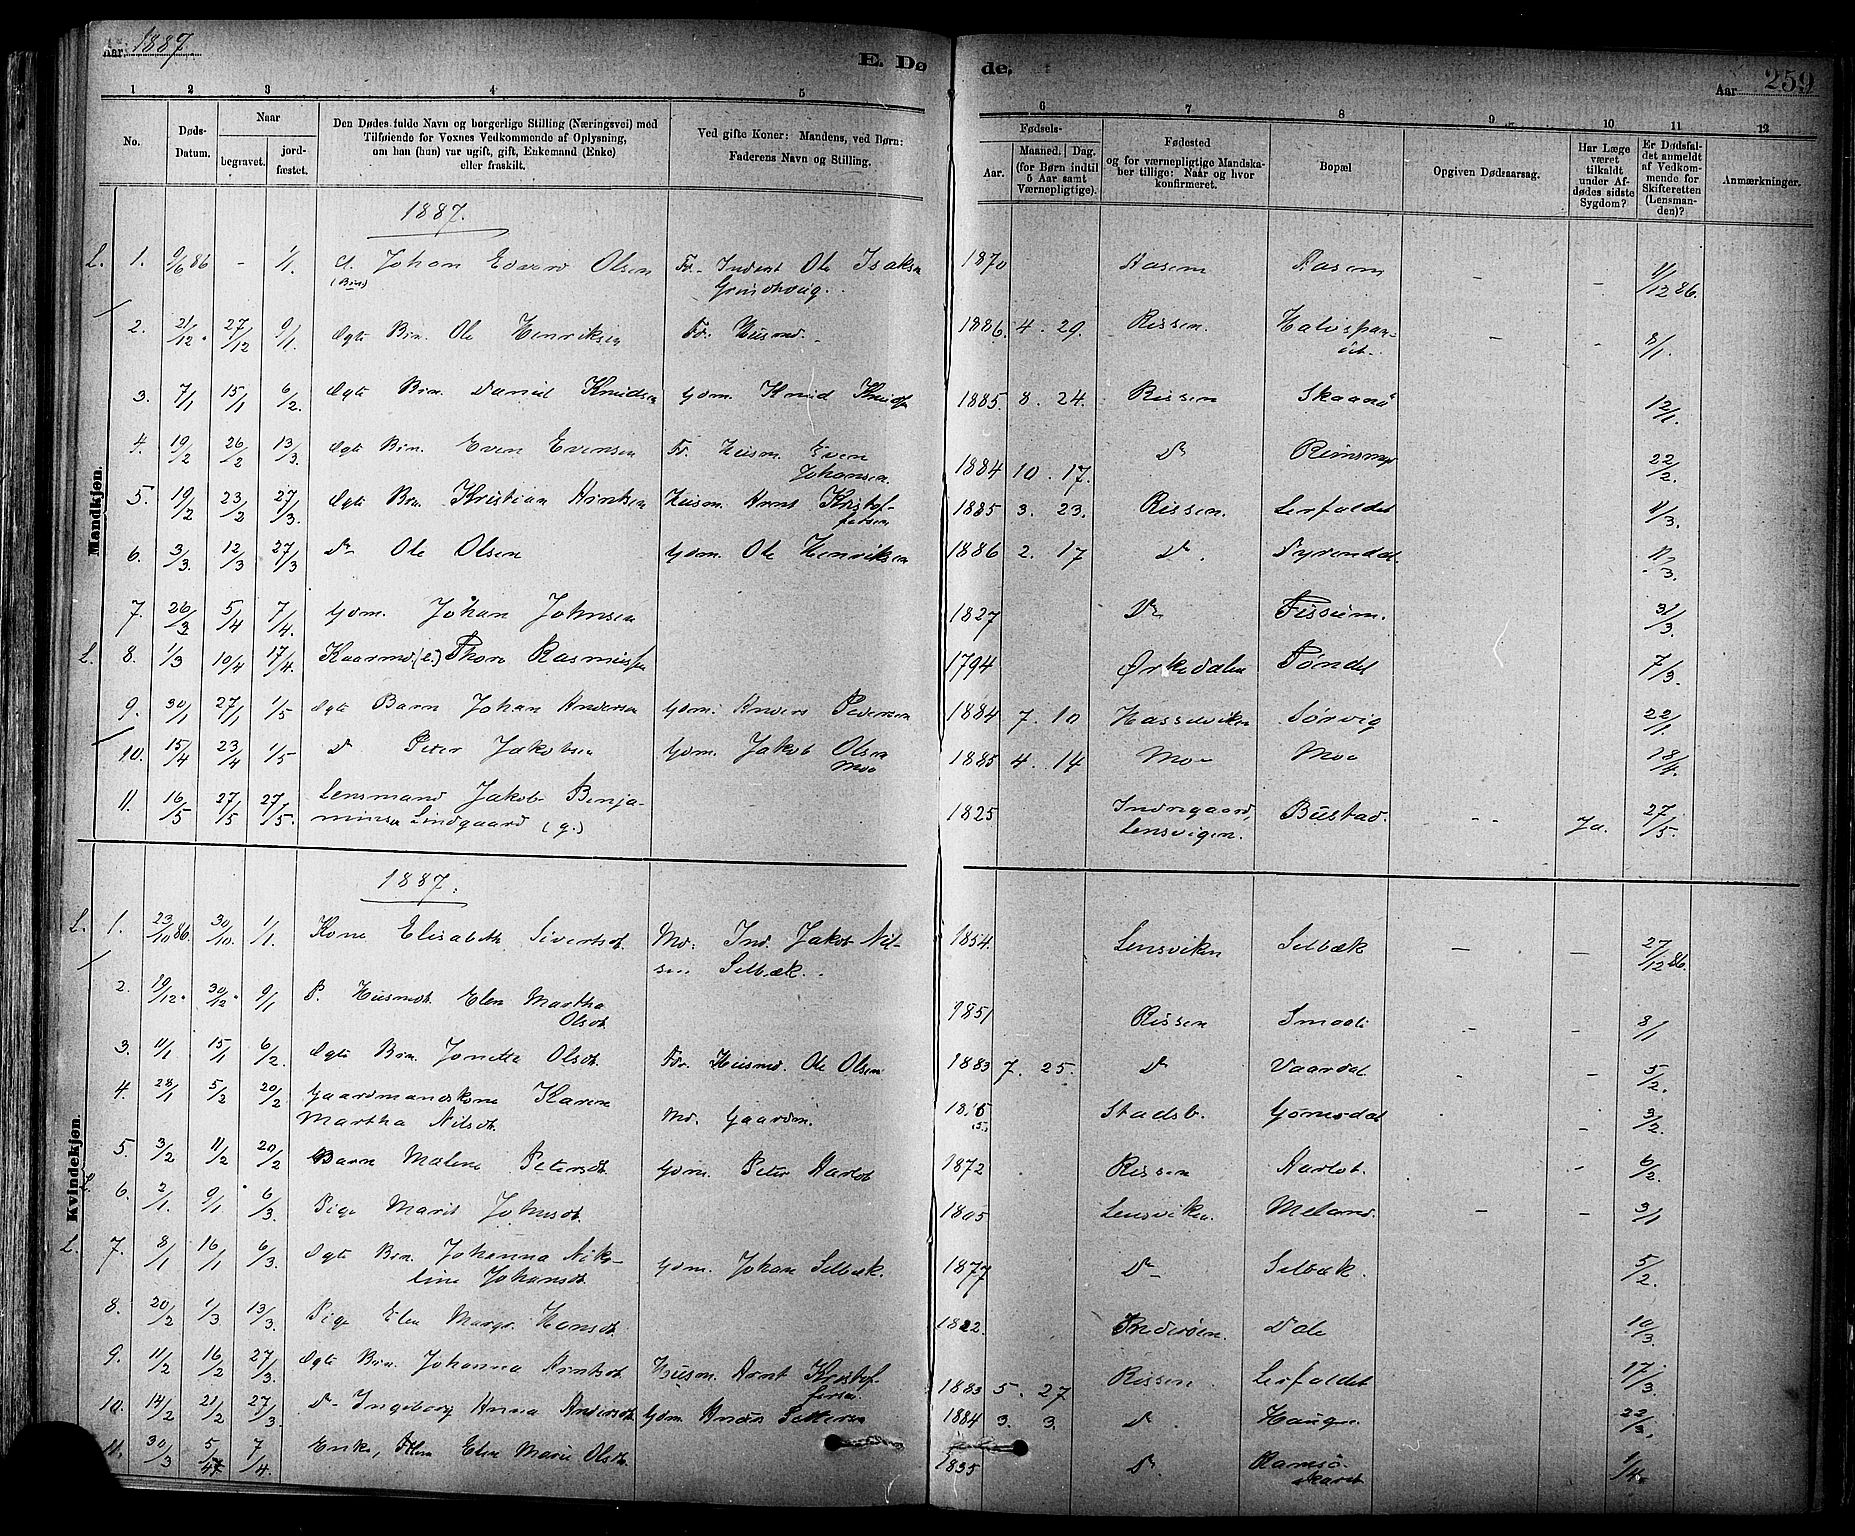 Aar 1887
E. Døde.
Aar 259
1 2 3 4 5 6 7 8 9 10 11 12
No.
Døds-Datum.
Naar
begravet.
jordfæstet.
Den Dødes fulde Navn og borgerlige Stilling (Næringsvei) med
Tilføiende for Voxnes Vedkommende af Oplysning,
om han (hun) var ugift, gift, Enkemand (Enke)
eller fraskilt.
Ved gifte Koner: Mandens, ved Børn:
Faderens Navn og Stilling.
Fødsels-
Aar.
Maaned. Dag.
(for Børn indtil
5 Aar samt
Værnepligtige).
Fødested
og for værnepligtige Mandskaber tillige: Naar og hvor
konfirmeret.
Bopæl
Opgiven Dødsaarsag.
Har Læge
været
tilkaldt
under Afdødes sidste
Sygdom?
Er Dødsfaldet anmeldt
af Vedkommende for
Skifteretten
(Lensmanden)?
Anmærkninger.
Mandkjøn.
1887.
L. 1. 9/6 86 - 1/1 Johan Edvard Olsen Isaksen 1870 Aasen Aasen - 1/12 86.
2. 21/12 27/12 9/1 Ægte Brn. Ole Henriksen Fdr. Husmd. 1886 4. 29. Rissen. - - 8/1.
3. 7/1 15/1 6/2 Ægte Brn. Daniel Knudsen Gdm. Knud 1885. 8. 24. Rissen Skaanø 12/1.
4. 19/2 26/2 13/3 Ægte Brn. Even Evensen Fdr. Husm. Even Johansen. 1884 10. 17. Do 22/2.
5. 19/2 23/2 27/3 Ægte Brn. Kristian Arntsen Husm. Arnt Kristoffersen 1885 3. 23. Rissen. Lerfaldet 1/3.
6. 3/3. 12/3 27/3 Do Ole Olsen Gdm. Ole Henriksen 1886 2. 17 Do. Dyrendal. 11/3.
7. 26/3 5/4 7/4. Gdm. Johan Johnsen 1827 Do Fissum. 31/3.
L. 8. 1/3 10/4 17/4. Kaarmd. (e.) Thore Rasmussen 1794 Ørkedalen Tøndel 7/3.
9. 30/1 27/1 1/5 Ægte Barn Johan Andersen Gdm. Anders Pedersen 1884 7. 10 Hasselviken Sørvig 22/1
10. 15/4 23/4 1/5 Do Peter Jakobsen Gdm. Jakob Olsen Moe 1885 4. 14 Moe Moe 18/4.
11. 16/5 27/5 27/5. Lensmand Jakob Benjaminsen Lindgaard (g.) 1825 Indergaard, Lensvigen. Bustad. - - Ja. 27/5.
Kvindekjøn.
1887.
L. 1. 23/10 86. 30/10. 1/1. Kone Elisabeth Sivertsdt. Md: Ind. Jakob Nilsen Selbæk. 1854. Lensviken Selbæk - - 27/12 86.
2. 19/12. 30/12. 9/1 P. Husmdt. Elen Martha Olsdt. 1851 Rissen - - 8/1
3. 11/1 15/1 6/2 Ægte Brn. Jonetta Olsdt. Fdr. Husmd. Ole Olsen 1883 7. 25. Do Vaardal. - - 5/2.
4. 28/1 5/2 20/2 Gaardmandskone Karen Martha Nilsdt. Md. Gaardm. Stadsb. - 3/2.
5. 3/2 11/2 20/2 Barn Malene Petersdt. Gdm. Peter 1872 Rissen - 6/2.
L. 6. 2/1. 9/1 6/3 Pige Marit Johnsdt. 1805 Lensviken. Meland. - - 3/1
L. 7. 8/1 16/1 6/3. Ægte Brn. Johanna Nikoline Johansdt. Gdm. Johan Selbæk. 1877 Do - Selbæk. 5/2.
8. 20/2 1/3 13/3. Pige Elen Margr. Hansdt. 1822. Dale 10/3
9. 11/2 16/2 27/3. Ægte Brn. Johanna Arntsdt. Husm. Arnt Kristoffersen 1883 5. 27 Rissen. Lerfaldet 17/3.
10. 14/2 21/2 27/3. Do Ingeborg Anna Andersdt. Gdm. 1884 3. 3. Do. Haugen 22/3.
11. 30/3 5/4 7/4. Enke, Elen Marie Olsdt. 1835 Do. 1/4.